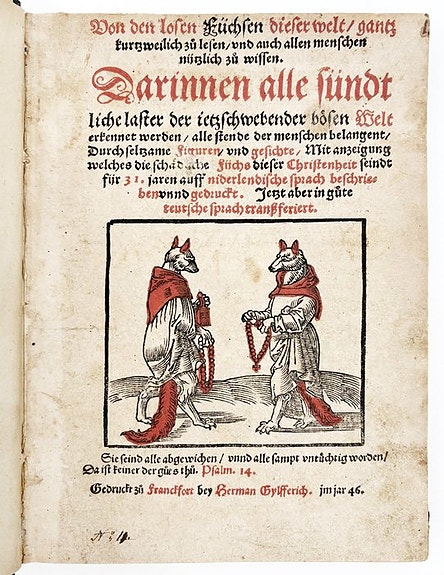 Von den losen Füchsen dieser welt / gantz
kurtzweilich zů lesen / vnd auch allen menschen
nützlich zů wissen.
Darinnen alle sündt
liche laster der ietzschwebender bösen Welt
erkennet werden / alle stende der menschen belangent /
Durch seltzame Figuren / vnd gesichte / Mit anzeigung
welches die schädliche Füchs dieser Christenheit seindt
für 31. jaren auff niderlendische sprach beschrie-
ben vnnd gedruckt. Jetzt aber in gůte
teutsche sprach tranßferiert.
Sie seind alle abgewichen / vnnd alle sampt vntüchtig worden /
Da ist keiner der gůts thů. Psalm. 14.
Gedruckt zů Franckfort bey Herman Gylfferich. jm jar 46.